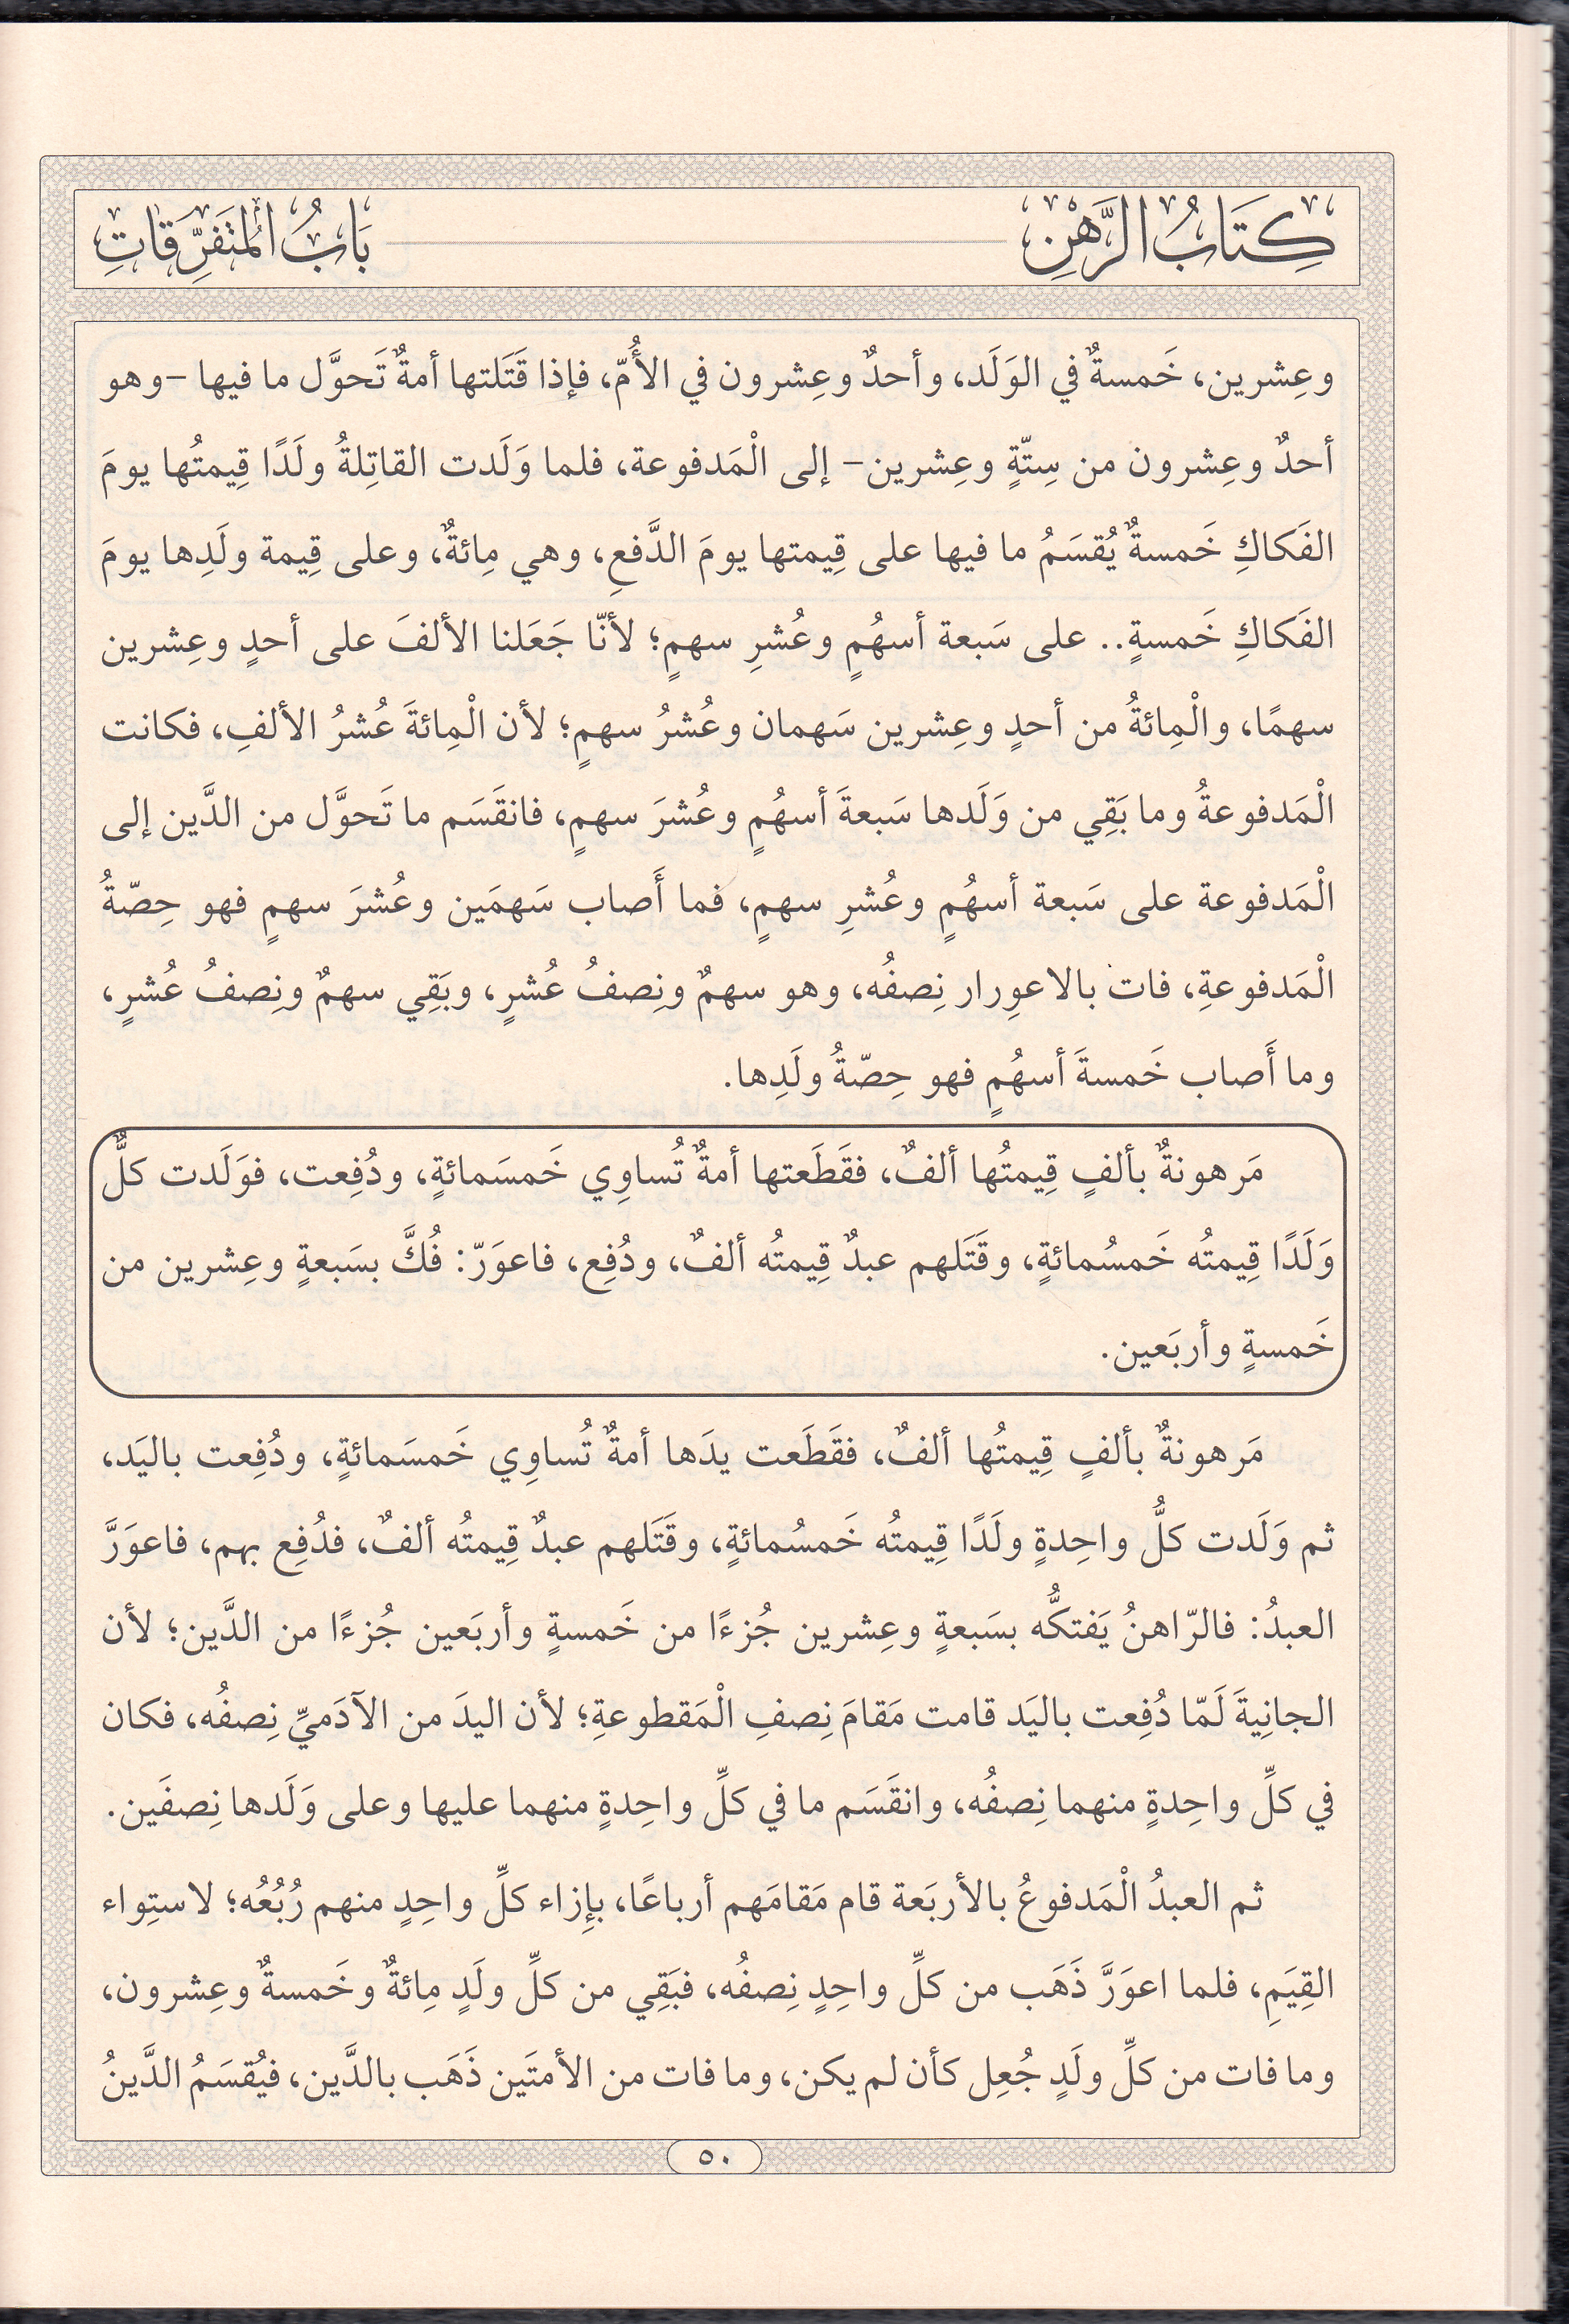 كِتَابُ الرَّهْنِ
بَابُ الْمُتَفَرِّقَاتِ
وعِشرين، خَمسةٌ في الوَلَد، وأحدٌ وعِشرون في الأُمّ، فإذا قَتَلتها أمةٌ تَحوَّل ما فيها –وهو
أحدٌ وعِشرون من سِتّةٍ وعِشرين– إلى الْمَدفوعة، فلما وَلَدت القاتِلةُ ولَدًا قِيمتُها يومَ
الفَكاكِ خَمسةٌ يُقسَمُ ما فيها على قِيمتها يومَ الدَّفعِ، وهي مِائةٌ، وعلى قِيمة ولَدِها يومَ
الفَكاكِ خَمسةٍ.. على سَبعة أسهُمٍ وعُشرِ سهمٍ؛ لأنّا جَعَلنا الألفَ على أحدٍ وعِشرين
سهمًا، والْمِائةُ من أحدٍ وعِشرين سَهمان وعُشرُ سهمٍ؛ لأن الْمِائةَ عُشرُ الألفِ، فكانت
الْمَدفوعةُ وما بَقِي من وَلَدها سَبعةَ أسهُمٍ وعُشرَ سهمٍ، فانقَسَم ما تَحوَّل من الدَّين إلى
الْمَدفوعة على سَبعة أسهُمٍ وعُشرِ سهمٍ، فما أَصاب سَهمَين وعُشرَ سهمٍ فهو حِصّةُ
الْمَدفوعةِ، فات بالاعوِرار نِصفُه، وهو سهمٌ ونِصفُ عُشرٍ، وبَقِي سهمٌ ونِصفُ عُشرٍ،
وما أَصاب خَمسةَ أسهُمٍ فهو حِصّةُ ولَدِها.
مَرهونةٌ بألفٍ قِيمتُها ألفٌ، فقَطَعتها أمةٌ تُساوِي خَمسَمائةٍ، ودُفِعت، فوَلَدت كلٌّ
وَلَدًا قِيمتُه خَمسُمائةٍ، وقَتَلهم عبدٌ قِيمتُه ألفٌ، ودُفِع، فاعوَرّ: فُكَّ بسَبعةٍ وعِشرين من
خَمسةٍ وأربَعين.
مَرهونةٌ بألفٍ قِيمتُها ألفٌ، فقَطَعت يدَها أمةٌ تُساوِي خَمسَمائةٍ، ودُفِعت باليَد،
ثم وَلَدت كلُّ واحِدةٍ ولَدًا قِيمتُه خَمسُمائةٍ، وقَتَلهم عبدٌ قِيمتُه ألفٌ، فدُفِع بهم، فاعوَرَّ
العبدُ: فالرّاهنُ يَفتكُّه بسَبعةٍ وعِشرين جُزءًا من خَمسةٍ وأربَعين جُزءًا من الدَّين؛ لأن
الجانِيةَ لَمّا دُفِعت باليَد قامت مَقامَ نِصفِ الْمَقطوعةِ؛ لأن اليدَ من الآدَميِّ نِصفُه، فكان
في كلِّ واحِدةٍ منهما نِصفُه، وانقَسَم ما في كلِّ واحِدةٍ منهما عليها وعلى وَلَدها نِصفَين.
ثم العبدُ الْمَدفوعُ بالأربَعة قام مَقامَهم أرباعًا، بإزاء كلِّ واحِدٍ منهم رُبُعُه؛ لاستِواء
القِيَمِ، فلما اعوَرَّ ذَهَب من كلِّ واحِدٍ نِصفُه، فبَقِي من كلِّ ولَدٍ مِائةٌ وخَمسةٌ وعِشرون،
وما فات من كلِّ ولَدٍ جُعِل كأن لم يكن، وما فات من الأمتَين ذَهَب بالدَّين، فيُقسَمُ الدَّينُ
٥٠